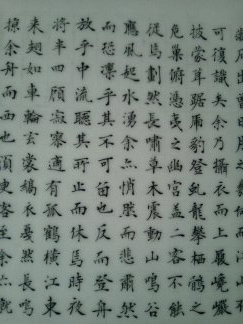 曾日月之幾何而江山不
可復識矣余乃攝衣而上履巉巖
披蒙茸踞虎豹登虬龍攀棲鶻之
危巢俯馮夷之幽宮蓋二客不能
從焉劃然長嘯草木震動山鳴谷
應風起水湧余亦悄然而悲肅然
而恐凜乎其不可留也反而登舟
放乎中流聽其所止而休焉時夜
將半四顧寂寥適有孤鶴橫江東
來翅如車輪玄裳縞衣戛然長鳴
掠余舟而西也須臾客去余亦就